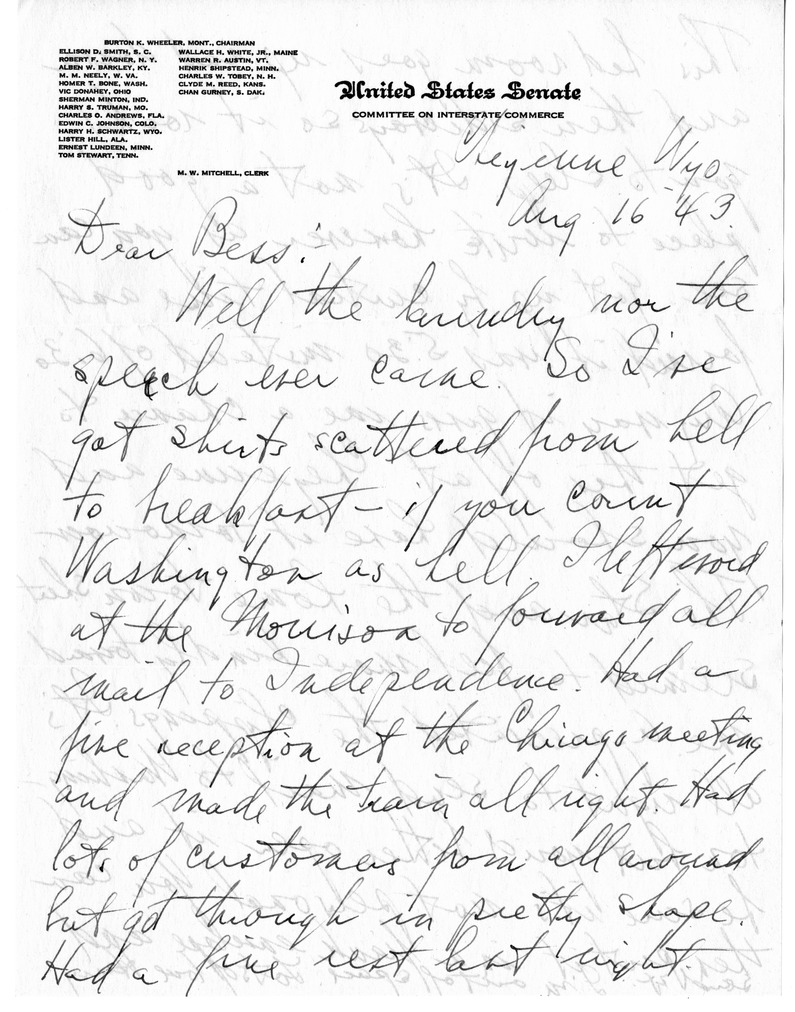 BURTON K. WHEELER, MONT., CHAIRMAN
ELLISON D. SMITH, S. C.
ROBERT F. WAGNER, N. Y.
ALBEN W. BARKLEY, KY.
M. M. NEELY, W. VA.
HOMER T. BONE, WASH.
VIC DONAHEY, OHIO
SHERMAN MINTON, IND.
HARRY S. TRUMAN, MO.
CHARLES O. ANDREWS, FLA.
EDWIN C. JOHNSON, COLO.
HARRY H. SCHWARTZ, WYO.
LISTER HILL, ALA.
ERNEST LUNDEEN, MINN.
TOM STEWART, TENN.
WALLACE H. WHITE, JR., MAINE
WARREN R. AUSTIN, VT.
HENRIK SHIPSTEAD, MINN.
CHARLES W. TOBEY, N. H.
CLYDE M. REED, KANS.
CHAN GURNEY, S. DAK.
M. W. MITCHELL, CLERK
United States Senate
COMMITTEE ON INTERSTATE COMMERCE
Cheyenne Wyo
Aug 16 '43.
Dear Bess:
Well the laundry nor the
speech ever came. So I've
got shirts scattered from hell
to breakfast – if you count
Washington as hell. I left word
at the Morrison to forward all
mail to Independence. Had a
fine reception at the Chicago meeting
and made the train all right. Had
lots of customers from all around
but got through in pretty shape.
Had a fine rest last night.